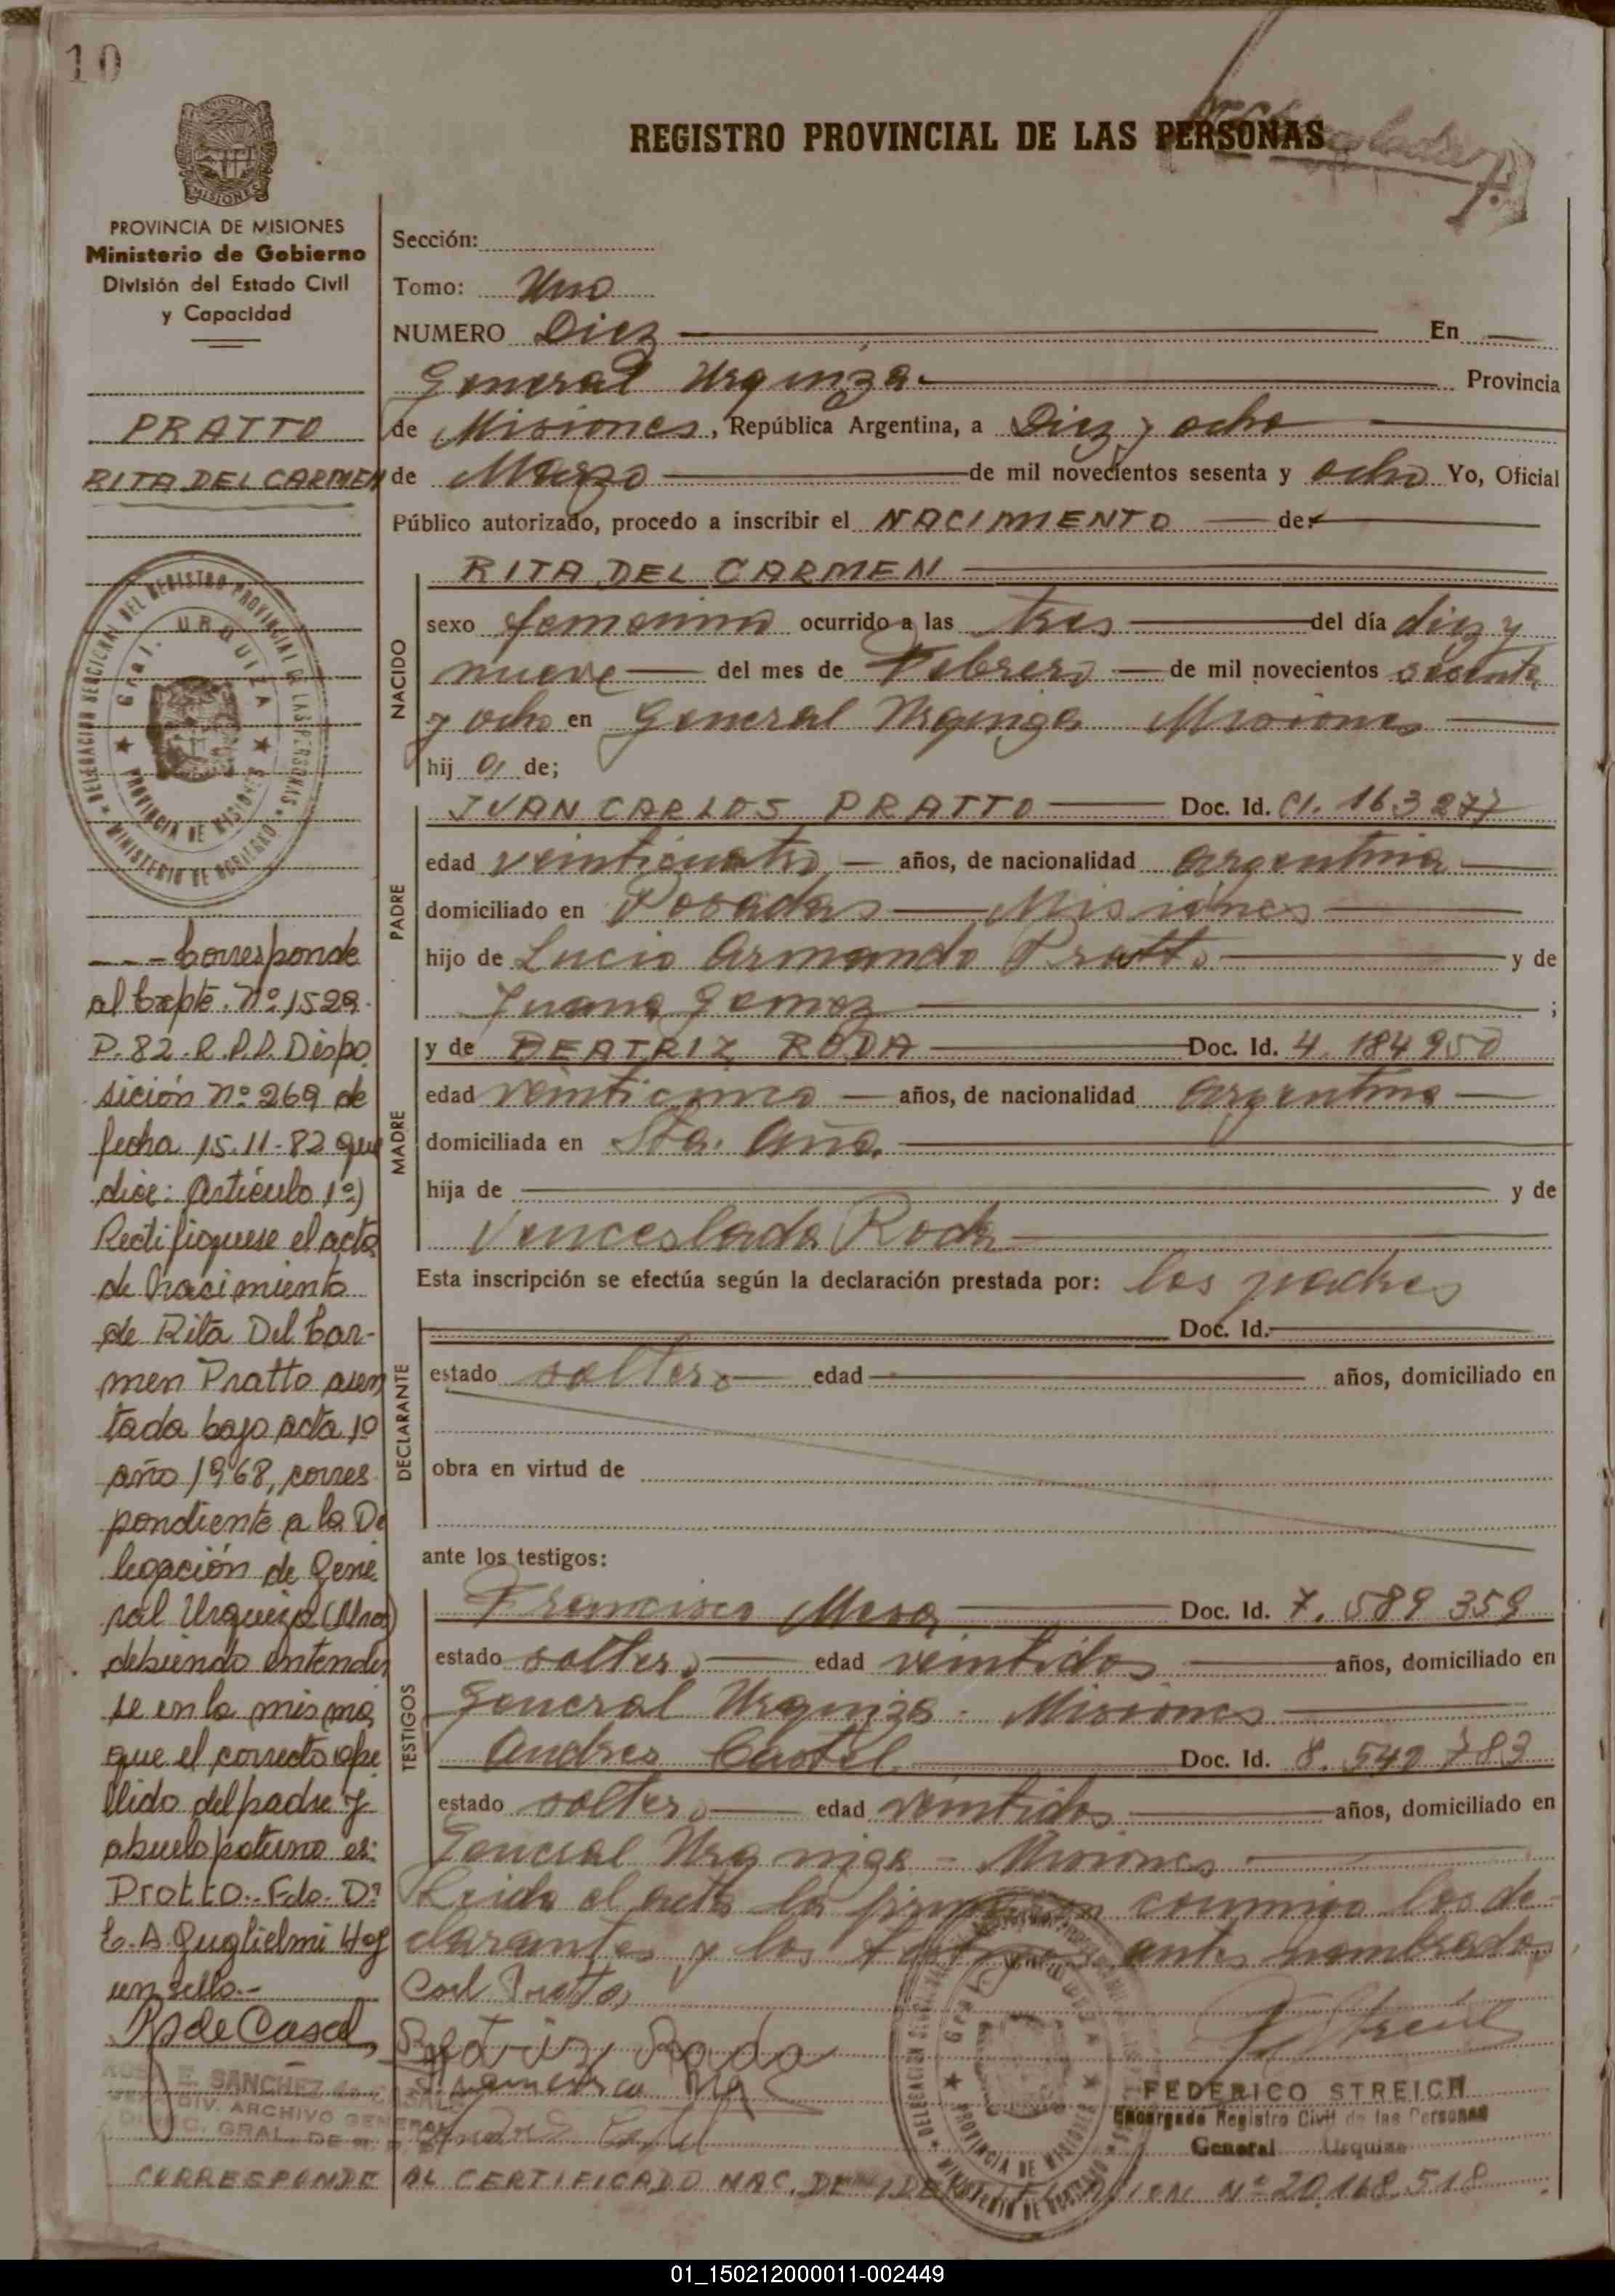 10
REGISTRO PROVINCIAL DE LAS PERSONAS
PROVINCIA DE MISIONES
Ministerio de Gobierno
División del Estado Civil
y Capacidad
PRATTO
RITA DEL CARMEN
DELEGACION SECCIONAL DEL REGISTRO PROVINCIAL DE LAS PERSONAS
Gral. URQUIZA
PROVINCIA DE MISIONES
MINISTERIO DE GOBIERNO
--- Corresponde
al Expte. Nº 1529-
P-82-R.P.P. Dispo
sición Nº 269 de
fecha 15-11-82 que
dice: Artículo 1º)
Rectifiquese el acta
de Nacimiento
de Rita Del Car-
men Pratto asen
tada bajo acta 10
año 1968, corres
pondiente a la De
legación de Gene
ral Urquiza (Mnes)
debiendo entender
se en la misma
que el correcto ape
llido del padre y
abuelo paterno es:
Protto.- Fdo. Dº
E. A. Guglielmi Hay
un sello.-
R S de Casal
ROSA E. SANCHEZ de CASAL
DIV. ARCHIVO GENERAL
DIREC. GRAL. DE
Sección:
Tomo: Uno
NUMERO Diez En
General Urquiza Provincia
de Misiones, República Argentina, a Diez y ocho
de Marzo de mil novecientos sesenta y ocho Yo, Oficial
Público autorizado, procedo a inscribir el NACIMIENTO de:
NACIDO
RITA DEL CARMEN
sexo femenino ocurrido a las tres del día diez y
nueve del mes de Febrero de mil novecientos sesenta
y ocho en General Urquiza Misiones
hij a de;
PADRE
JUAN CARLOS PRATTO Doc. Id. CI. 163277
edad veinticuatro años, de nacionalidad argentina
domiciliado en Posadas Misiones
hijo de Lucio Armando Pratto y de
Juana Gomez ;
MADRE
y de BEATRIZ RODA Doc. Id. 4.184950
edad veinticinco años, de nacionalidad argentina
domiciliada en Sta. Ana
hija de y de
Venceslada Roda
Esta inscripción se efectúa según la declaración prestada por: los padres
DECLARANTE
Doc. Id.
estado soltero edad años, domiciliado en
obra en virtud de
ante los testigos:
TESTIGOS
Francisco Meza Doc. Id. 7.589 359
estado soltero edad veintidos años, domiciliado en
General Urquiza - Misiones
Andres Castel Doc. Id. 8.542 783
estado soltero edad veintidos años, domiciliado en
General Urquiza - Misiones
Leida el acta la firmaron conmigo los de-
clarantes y los testigos antes nombrados
Carl Protto
Beatriz Roda
Francisco
F Streich
FEDERICO STREICH
Encargado Registro Civil de las Personas
General Urquiza
DELEGACION
Gral. URQUIZA
PROVINCIA DE MISIONES
MINISTERIO DE GOBIERNO
CORRESPONDE AL CERTIFICADO NAC. DE IDENTIFICACION Nº 20.168.518
01_150212000011-002449